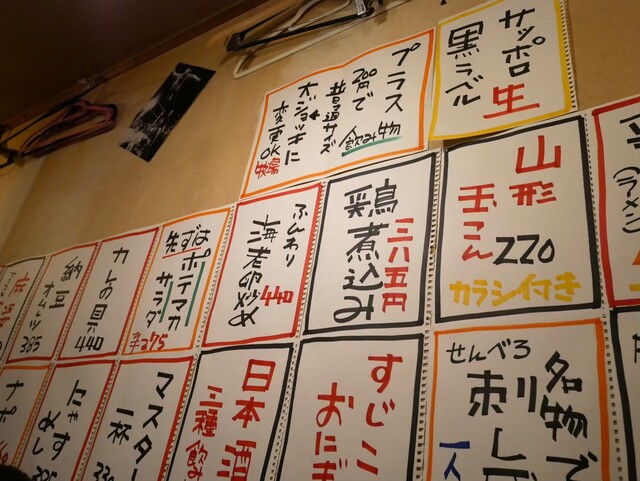 サッポロ生
黒ラベル
プラス
200円で
飲み物
普通サイズ
大ジョッキに
変更OK
山形
玉こん
220
カラシ付き
鶏煮込み
三六五円
ふんわり
海老卵炒め
まずは
ポテマカ
サラダ
半275
カレーの具
440
納豆
オムレツ
385
せんべろ
名物で
刺し
一人
すじこ
おにぎ
日本酒
三種飲み
マスター
一杯
330
にゃす
めし
ナポ